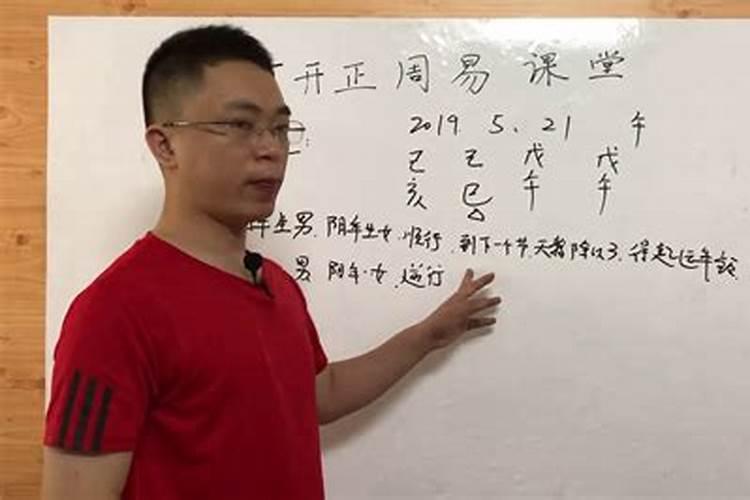 开正周易课堂
2019. 5. 21 午
己 己 戊 戊
亥 巳 午 午
年生男. 阴年生女. 顺行. 到下一个节 天数除以3. 得起运年龄.
男 阳年.女. 逆行